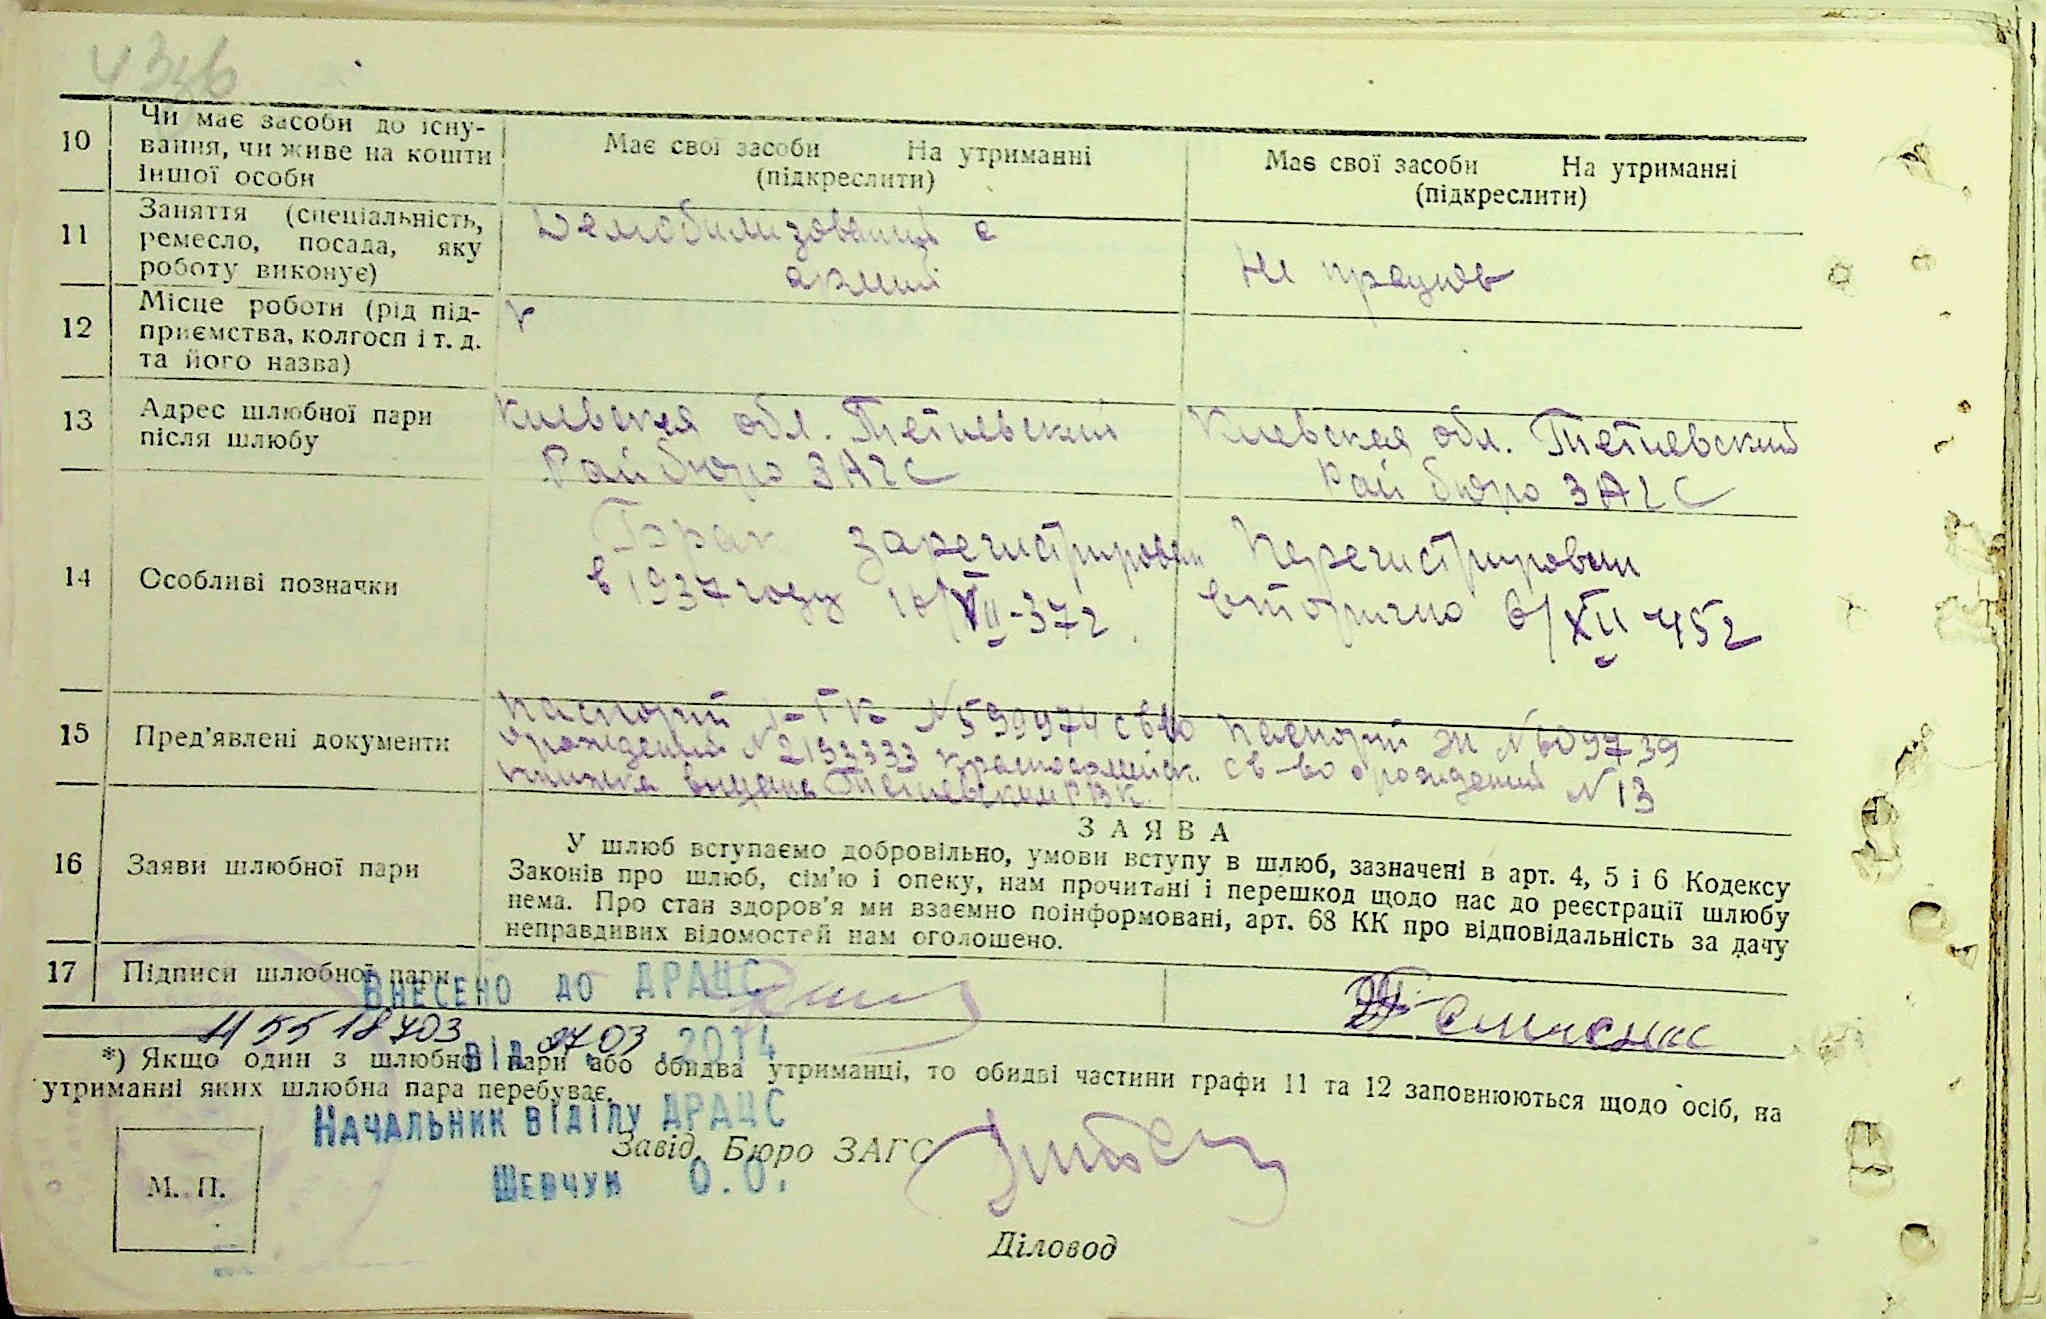 10 Чи має засоби до існу-
вання, чи живе на кошти
іншої особи
Має свої засоби На утриманні
(підкреслити)
Має свої засоби На утриманні
(підкреслити)
11 Заняття (спеціальність,
ремесло, посада, яку
роботу виконує)
Демобилизований с
армии
Не працює
12 Місце роботи (рід під-
приємства, колгосп і т. д.
та його назва)
13 Адрес шлюбної пари
після шлюбу
Киевская обл. Тетиевский
Рай бюро ЗАГС
Киевская обл. Тетиевский
Рай бюро ЗАГС
14 Особливі позначки
Брак зарегистрирован
в 1937 году 10/VII-37г.
Перегистрирован
вторично 6/XII-45г
15 Пред'явлені документи
Паспорт № 590974 св-во
о рождении № 2193333 красноармейск.
книжка выдана Тетиевским РВК.
Паспорт № 609739
св-во о рождении № 13
16 Заяви шлюбної пари
ЗАЯВА
У шлюб вступаємо добровільно, умови вступу в шлюб, зазначені в арт. 4, 5 і 6 Кодексу
Законів про шлюб, сім'ю і опеку, нам прочитані і перешкод щодо нас до реєстрації шлюбу
нема. Про стан здоров'я ми взаємно поінформовані, арт. 68 КК про відповідальність за дачу
неправдивих відомостей нам оголошено.
17 Підписи шлюбної пари
Внесено до ДРАЦС
5518703 від 2703.2014
*) Якщо один з шлюбної пари або обидва утриманці, то обидві частини графи 11 та 12 заповнюються щодо осіб, на
утриманні яких шлюбна пара перебуває.
Начальник відділу ДРАЦС
Завід. Бюро ЗАГС
Шевчук О.О.
М. П.
Діловод